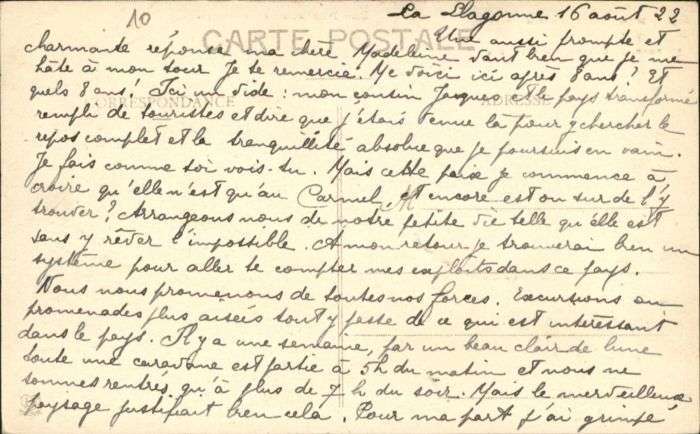 10
La Llagonne 16 août 22
CARTE POSTALE
Une aussi prompte et
charmante réponse ma chère Madeleine vaut bien que je me
hâte à mon tour Je te remercie. Me voici ici après 8 ans ! Et
quels 8 ans. Ici un vide : mon cousin Jacques et le pays transformé
CORRESPONDANCE
ADRESSE
rempli de touristes et dire que j'étais venue là pour y chercher le
repos complet et la tranquillité absolue que je poursuis en vain.
Je fais comme toi vois-tu. Mais cette paix je commence à
croire qu'elle n'est qu'au Carmel, et encore est on sur de l'y
trouver ? Arrangeons nous de notre petite vie telle qu'elle est
sans y rêver l'impossible. A mon retour je trouverai bien un
système pour aller te compter mes exploits dans ce pays.
Nous nous promenons de toutes nos forces. Excursions ou
promenades plus aisées tout y passe de ce qui est intéressant
dans le pays. Il y a une semaine, par un beau clair de lune
toute une caravane est partie à 5h du matin et nous ne
sommes rentrés qu'à plus de 7 h du soir. Mais le merveilleux
paysage justifiait bien cela. Pour ma part j'ai grimpé